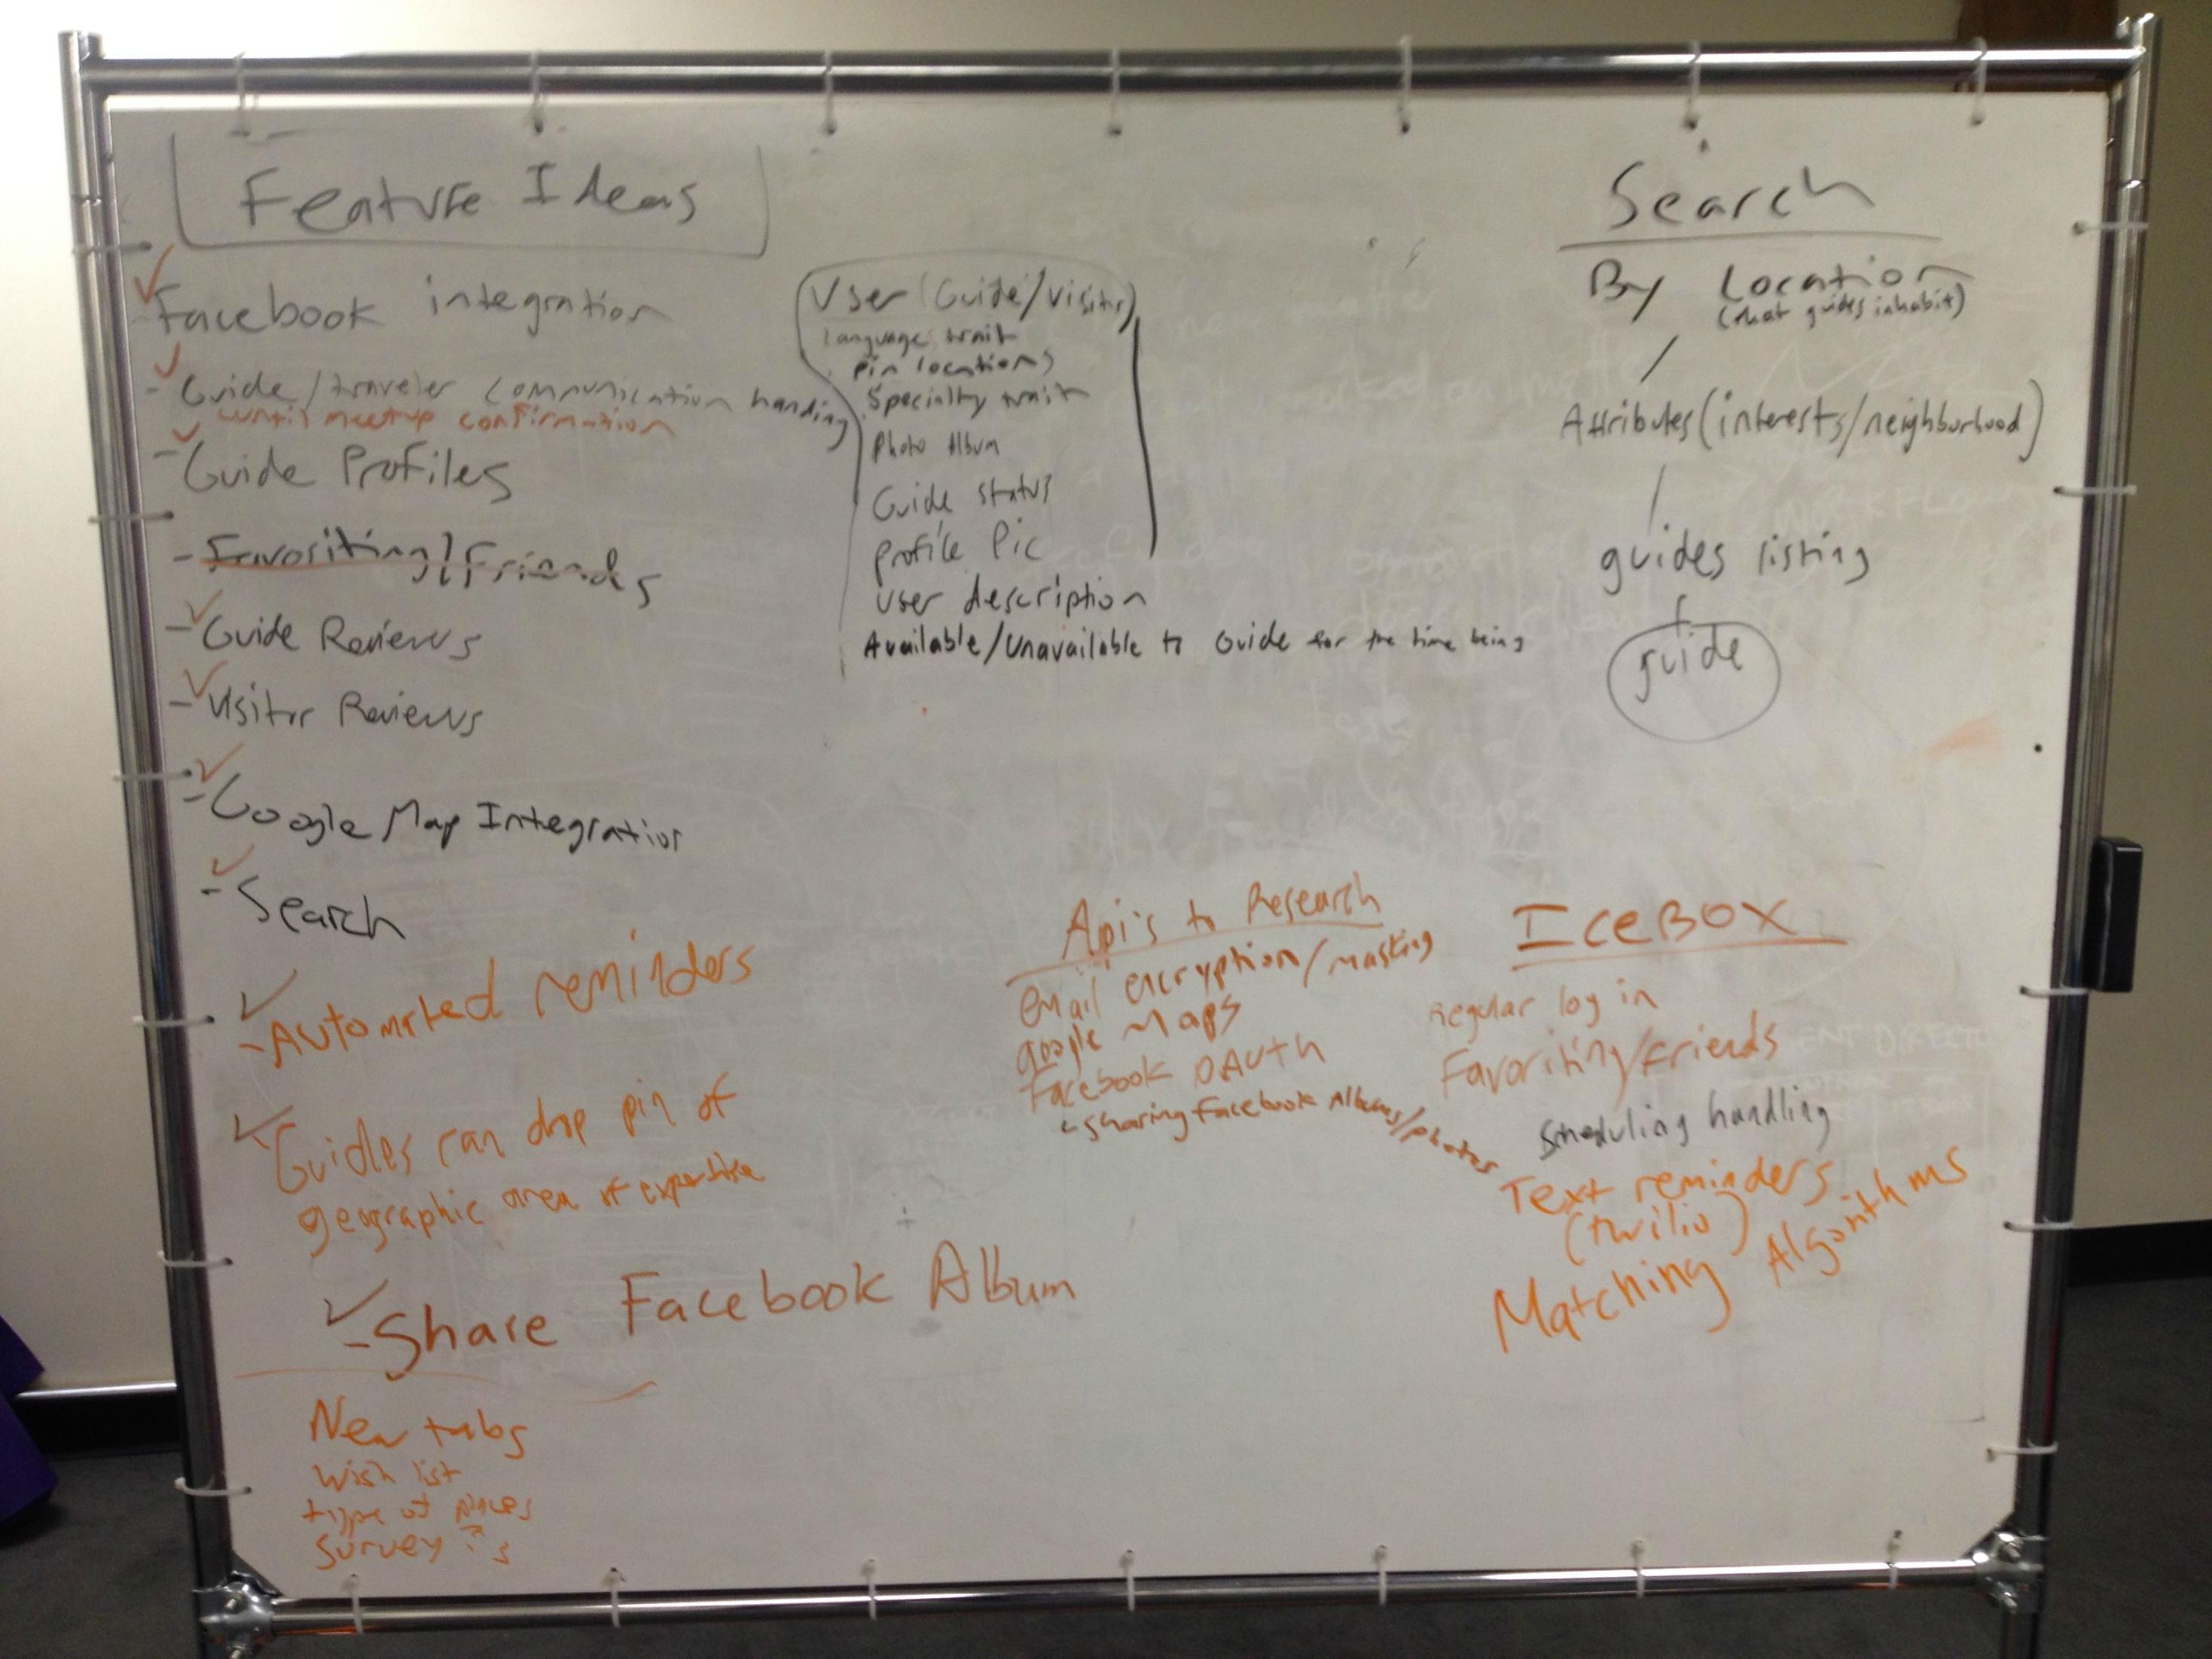 Feature Ideas
- Facebook integration
- Guide/traveler communication handling
until meetup confirmation
- Guide Profiles
- Favoriting/Friends
- Guide Reviews
- Visitor Reviews
- Google Map Integration
- Search
- Automated reminders
Guides can drop pin of
geographic area of expertise
- Share Facebook Album
New tabs
Wish list
type of places
Survey ?'s
User (Guide/Visitor)
language trait
pin locations
Specialty trait
Photo Album
Guide status
Profile Pic
User description
Available/Unavailable to Guide for the time being
Search
By Location
(that guides inhabit)
Attributes (interests/neighborhood)
guides listing
guide
Api's to Research
email encryption/masking
google Maps
Facebook OAuth
- Sharing Facebook Albums/photos
IceBOX
Regular log in
Favoriting/friends
Scheduling handling
Text reminders
(twilio)
Matching Algorithms